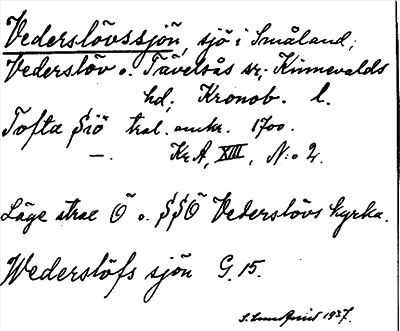 Vederslövssjön, sjö i Småland;
Vederslöv o. Tävelsås sn; Kinnevalds
hd; Kronob. l.
Tofta Siö tral. omkr. 1700.
—. KrA, XIII, N:o 2.
Läge strax Ö o. SSÖ Vederslövs kyrka.
Wederslöfs sjön G. 15.
1937.